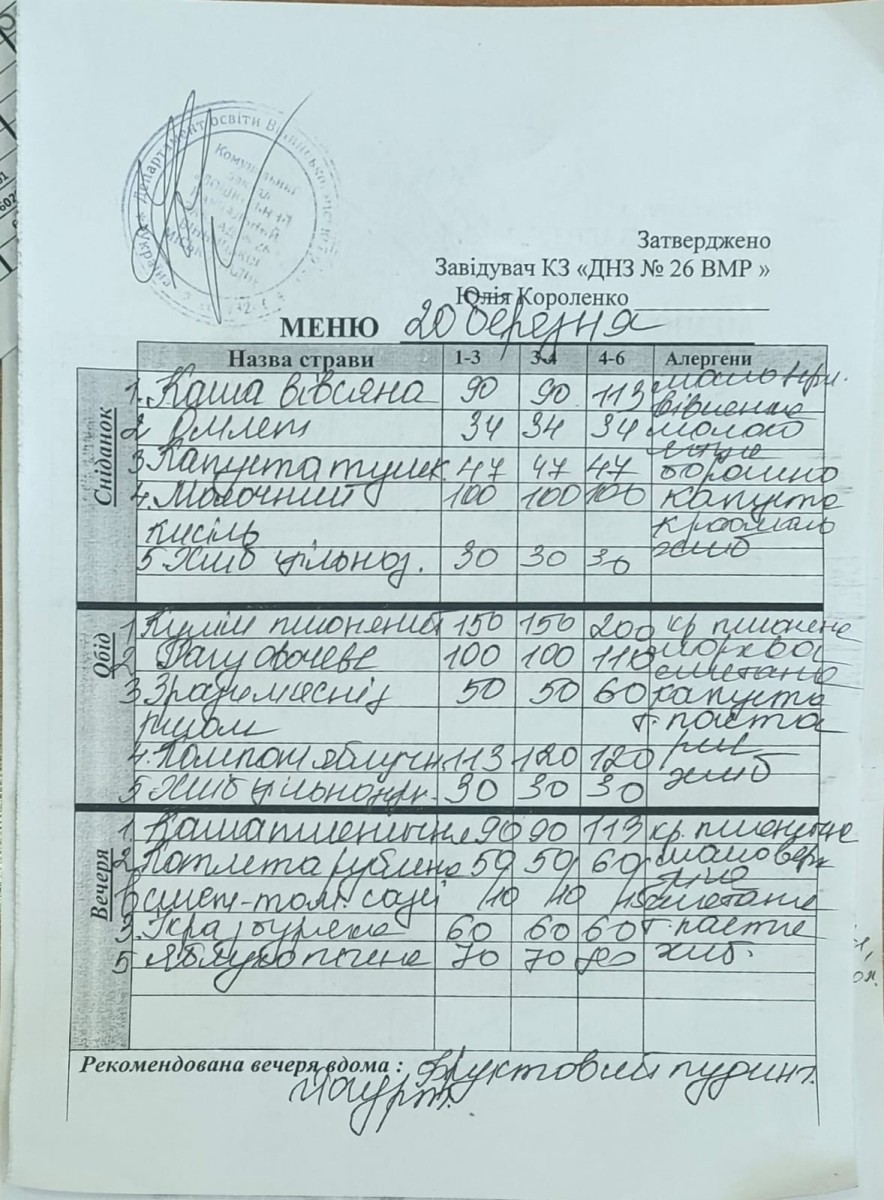 Департамент освіти
Комунальний
заклад
Затверджено
Завідувач КЗ «ДНЗ № 26 ВМР »
Юлія Короленко
МЕНЮ 20 березня
Назва страви 1-3 3-4 4-6 Алергени
Сніданок
1. Каша вівсяна 90 90 113 масло
2 Омлет 34 34 34 молоко
яйце
3 Капуста тушк. 47 47 47 борошно
4. Молочний 100 100 100 капуста
кисіль крохмаль
5 Хліб цільноз. 30 30 30 хліб
Обід
1 Куліш пшоняний 150 150 200 кр. пшоняна
2 Рагу овочеве 100 100 110 морква
сметана
3 Зрази мясні з 50 50 60 капуста
рисом т. паста
4. Компот яблучн. 113 120 120 рис
5 Хліб цільнозерн. 30 30 30 хліб
Вечеря
1. Каша пшенична 90 90 113 кр. пшенична
2 Котлета рублена 50 50 60 масло верш
яйце
смет-том. соусі 10 10 15 сметана
3 Ікра бурякова 60 60 60 т. паста
5 Яблуко печене 70 70 70 хліб.
Рекомендована вечеря вдома : Фруктовий пудинг.
Йогурт.